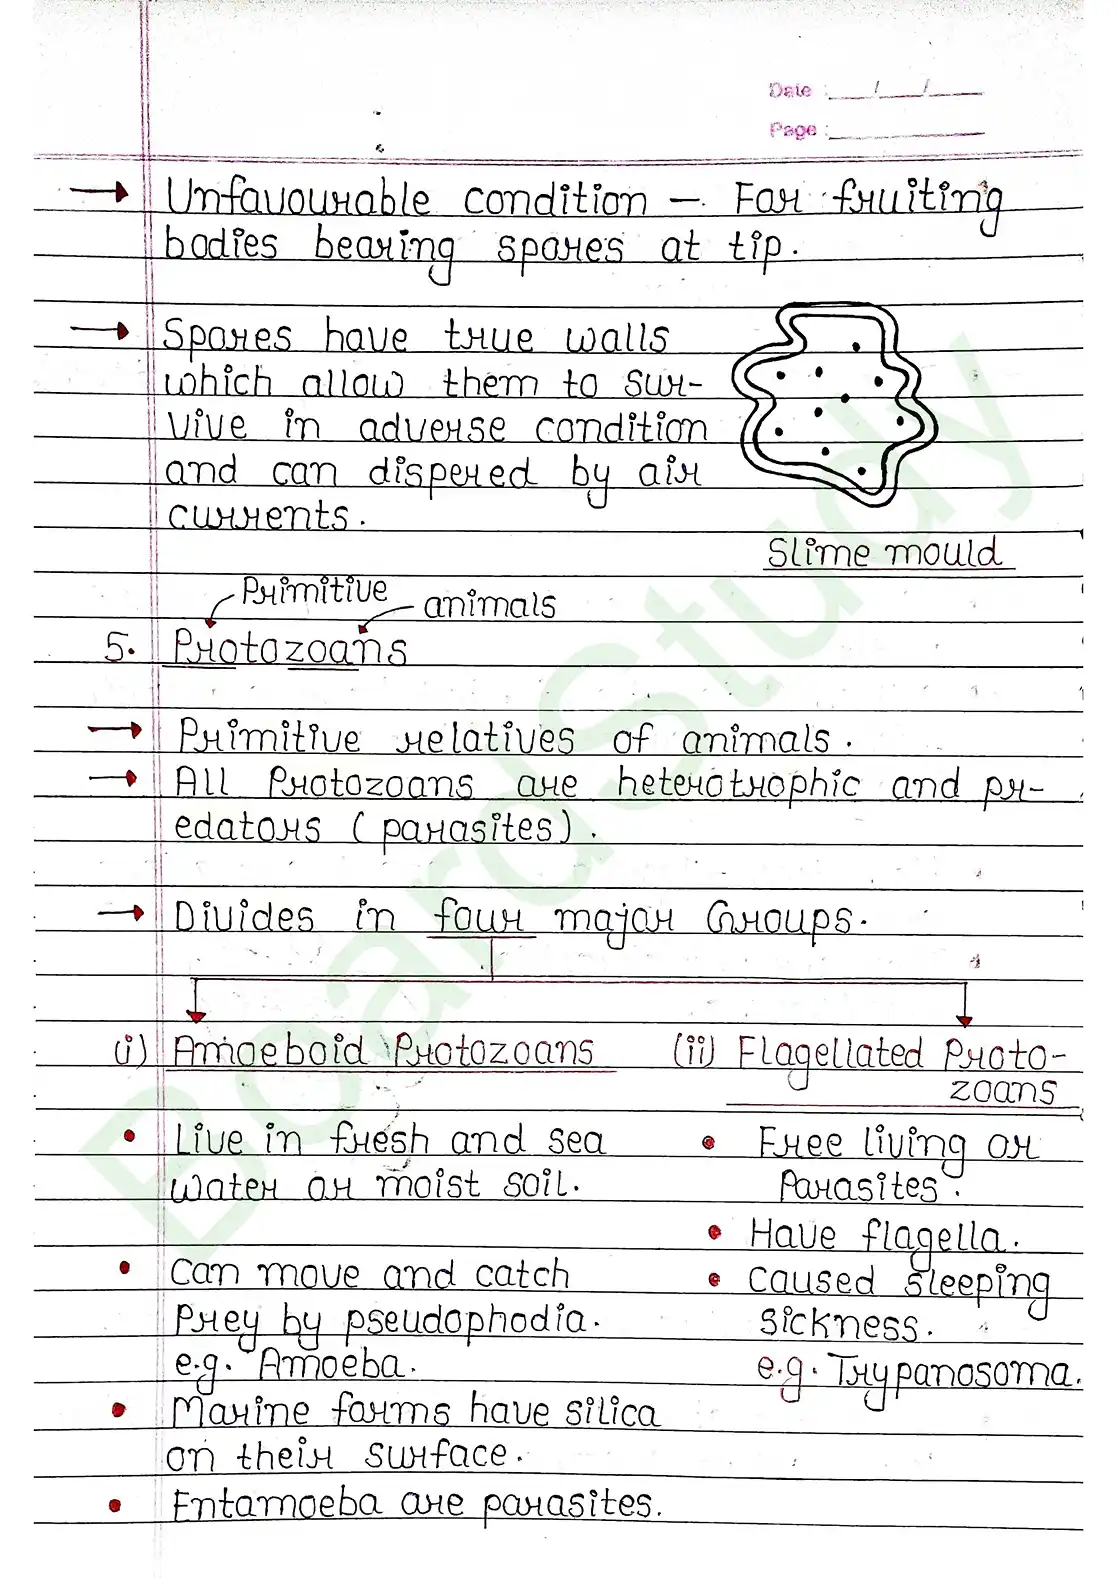 Date : __/__/__
Page : ______
→ Unfavourable condition – For fruiting
bodies bearing spores at tip.
→ Spores have true walls
which allow them to sur-
vive in adverse condition
and can dispered by air
currents.
Slime mould
Primitive animals
5. Protozoans
→ Primitive relatives of animals.
→ All Protozoans are heterotrophic and pr-
edators (parasites).
→ Divides in four major Groups.
(i) Amoeboid Protozoans
• Live in fresh and sea
water or moist soil.
• Can move and catch
Prey by pseudophodia.
e.g. Amoeba.
• Marine forms have silica
on their surface.
• Entamoeba are parasites.
(ii) Flagellated Proto-
zoans
• Free living or
Parasites.
• Have flagella.
• Caused sleeping
sickness.
e.g. Trypanosoma.
BoardStudy